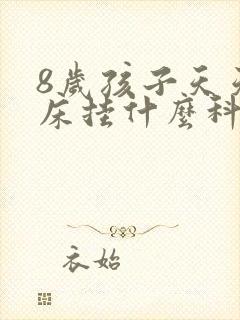 8歲孩子天天
床挂什麼科
衣始